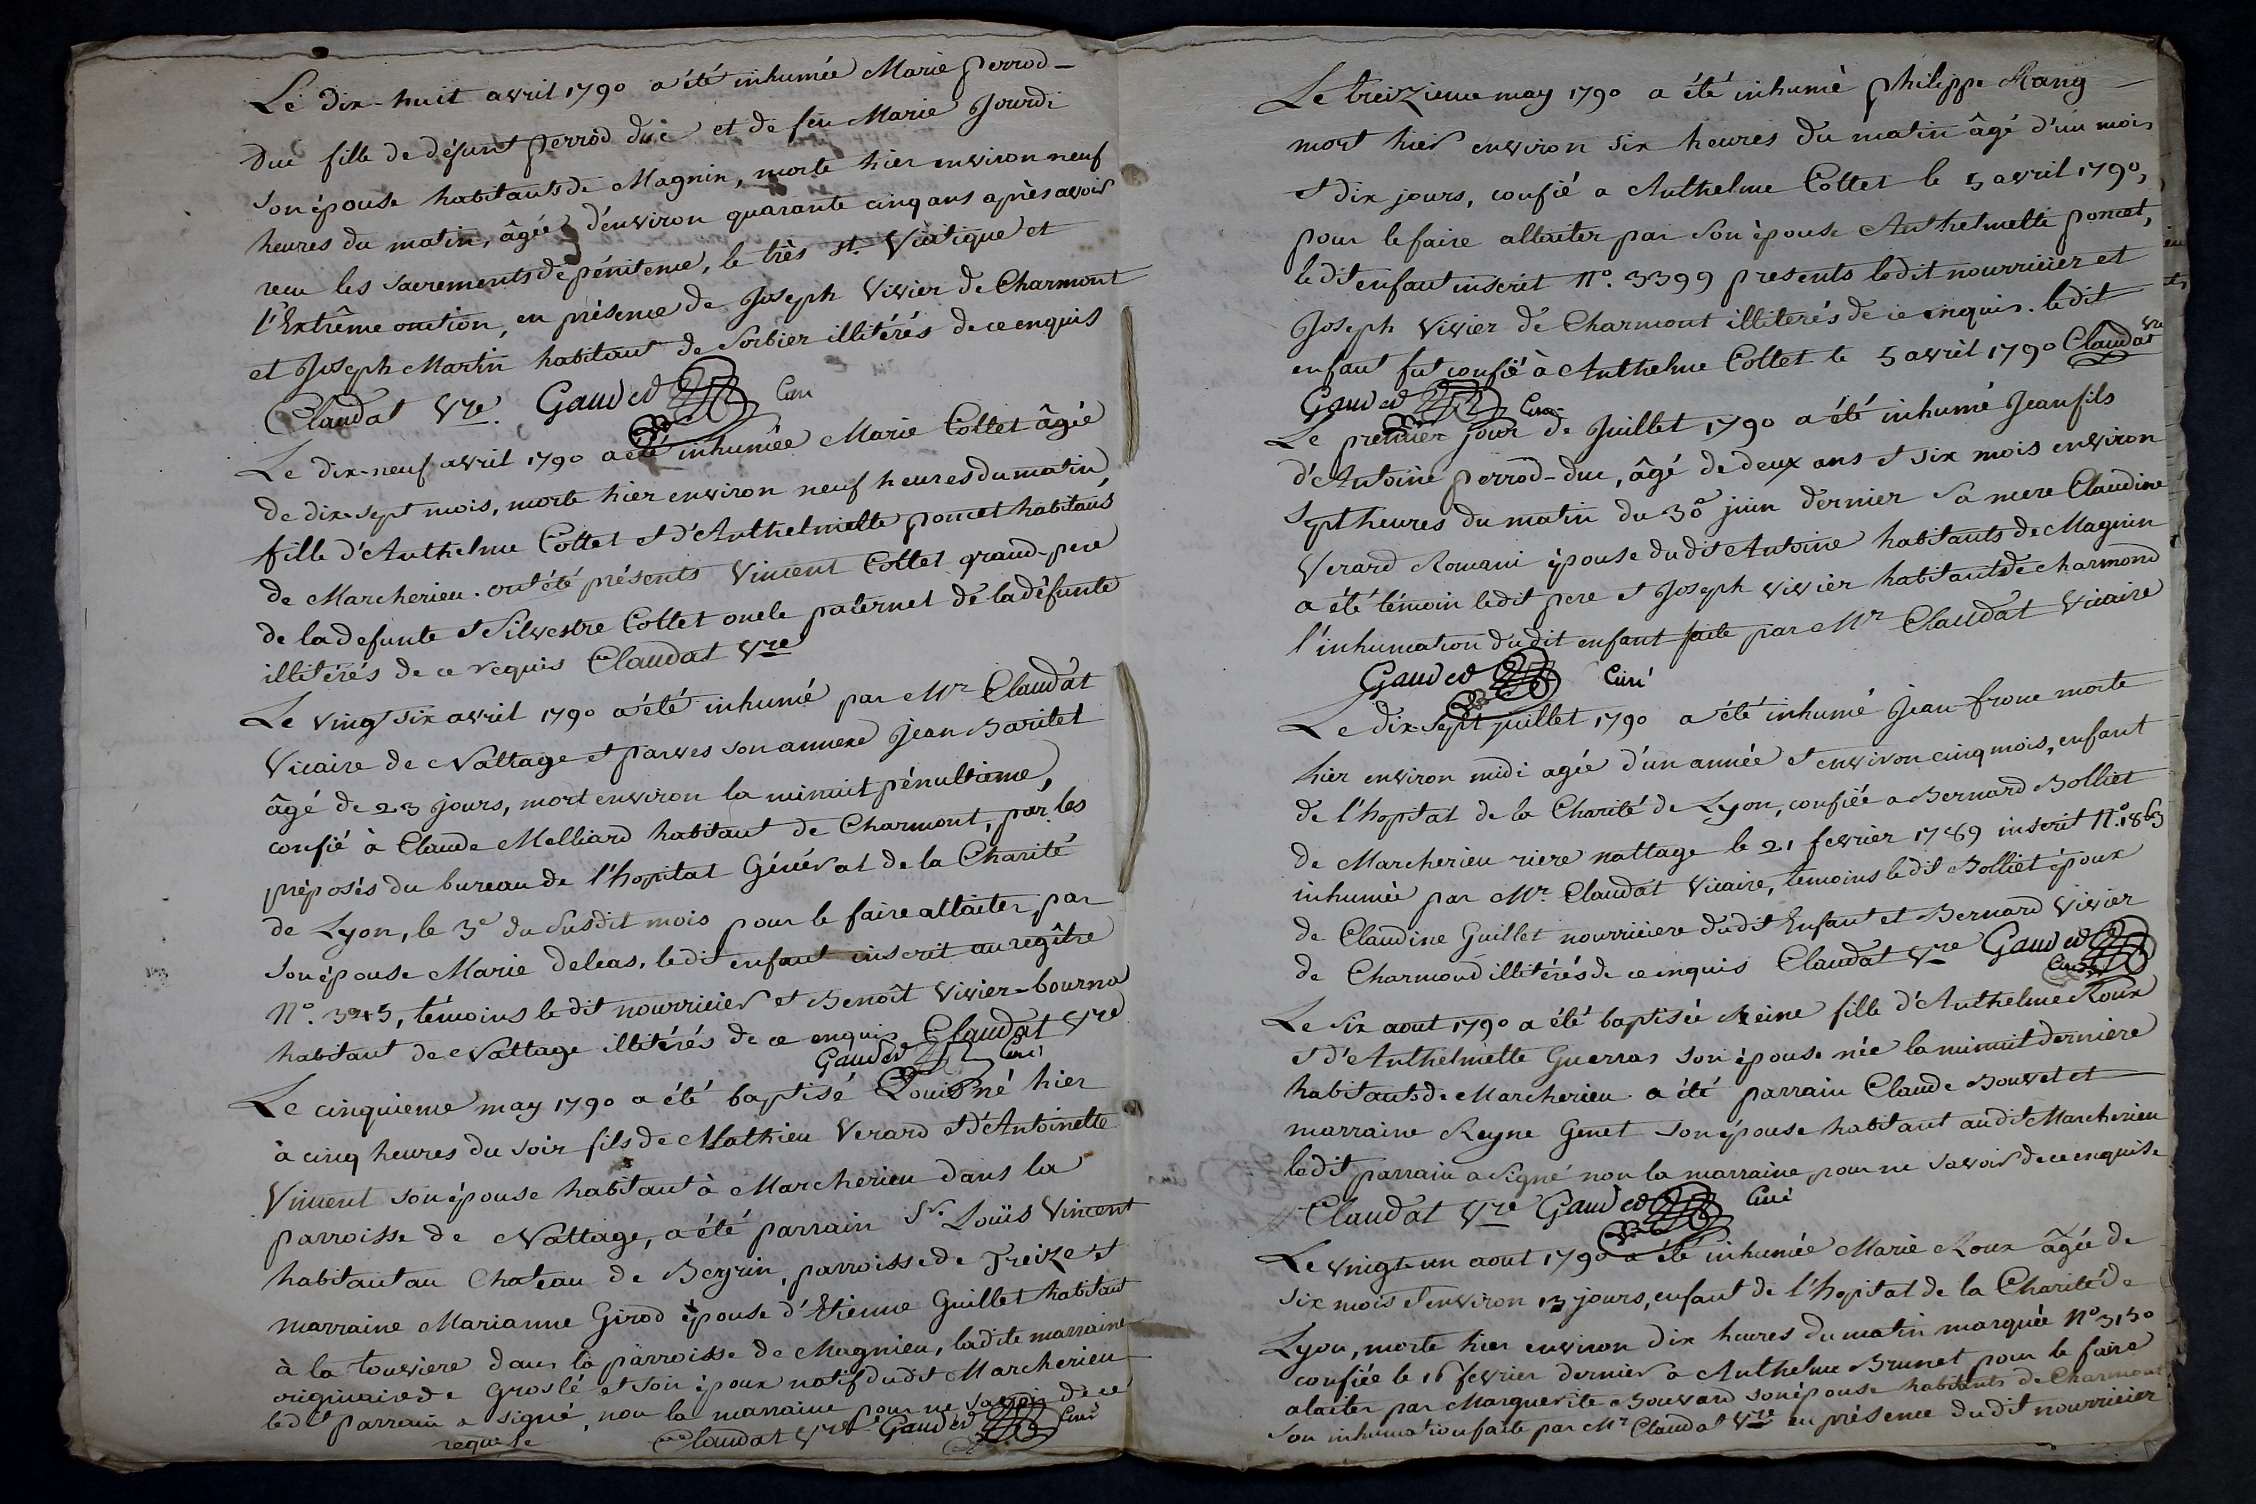 Le dix-huit avril 1790 a été inhumée Marie perrod-
Duc fille de défunt perrod duc et de feu Marie Jourdi
son épouse habitants de Magnin, morte hier environ neuf
heures du matin, âgée d'environ quarante cinq ans après avoir
reçu les sacrements de pénitence, le très st. Viatique et
l'Extrême onction, en présence de Joseph Vivier de Charmont
et Joseph Martin habitant de Sorbier illitérés de ce enquis
Claudat Vre. Gauded Curé
Le dix-neuf avril 1790 a été inhumée Marie Collet âgée
de dix-sept mois, morte hier environ neuf heures du matin
fille d'Anthelme Collet et d'Anthelmette poncet habitans
de Marcherieu. ont été présents Vincent Collet grand-pere
de la defunte et Silvestre Collet oncle paternel de la défunte
illitérés de ce requis Claudat Vre
Le vingt six avril 1790 a été inhumé par Mr Claudat
Vicaire de Nattage et parves son annexe Jean Baritel
âgé de 23 jours, mort environ la minuit pénultieme,
confié à Claude Melliard habitant de Charmont, par les
préposés du bureau de l'hopital Général de la Charité
de Lyon, le 3e du susdit mois pour le faire allaiter par
son épouse Marie deleas. ledit enfant inscrit au regître
N°. 3245, témoins le dit nourricier et Benoît Vivier-bourna
habitant de Nattage illitérés de ce enquis Claudat Vre
Gauded Curé
Le cinquieme may 1790 a été baptisé Louis né hier
à cinq heures du soir fils de Mathieu Verard et d'Antoinette
Vincent son épouse habitant à Marcherieu dans la
parroisse de Nattage, a été parrain Sr. Louis Vincent
habitant au Chateau de Beyrin, parroisse de Treize et
marraine Marianne Girod épouse d'Etienne Guillet habitant
à la touviere dans la parroisse de Magnieu, ladite marraine
originaire de Groslé et son époux natif dudit Marcherieu
ledit parrain a signé, non la marraine pour ne savoir de ce
requise Claudat Vre Gauded Curé
Le treizieme may 1790 a été inhumé philippe Rang
mort hier environ six heures du matin âgé d'un mois
et dix jours, confié a Anthelme Collet le 5 avril 1790,
pour le faire allaiter par son épouse Anthelmette poncet,
ledit enfant inscrit N°. 3399 presents ledit nourricier et
Joseph Vivier de Charmont illiterés de ce enquis. ledit
enfant fut confié à Anthelme Collet le 5 avril 1790 Claudat Vre
Gauded Curé
Le premier jour de Juillet 1790 a été inhumé Jean fils
d'Antoine perrod-duc, âgé de deux ans et six mois environ
sept heures du matin du 30 juin dernier sa mere Claudine
Verard Romani épouse dudit Antoine habitants de Magnin
a été témoin ledit pere et Joseph Vivier habitant de Charmond
l'inhumation dudit enfant faite par Mr Claudat Vicaire
Gauded Curé
Le dix-sept juillet 1790 a été inhumé Jean froue morte
hier environ midi agée d'un année et environ cinq mois, enfant
de l'hopital de la Charité de Lyon, confiée a Bernard Bolliet
de Marcherieu riere nattage le 21 fevrier 1789 inscrit N°. 1863
inhumée par Mr. Claudat Vicaire, temoins ledit Bolliet époux
de Claudine Guillet nourriciere dudit Enfant et Bernard Vivier
de Charmond illitérés de ce enquis Claudat Vre Gauded
Curé
Le six aout 1790 a été baptisée Reine fille d'Anthelme Roux
et d'Anthelmette Guerras son épouse née la minuit derniere
habitants de Marcherieu. a été parrain Claude Bouvet et
marraine Reyne Genet son épouse habitant audit Marcherieu
ledit parrain a signé non la marraine pour ne savoir de ce enquise
Claudat Vre Gauded Curé
Le vingt-un aout 1790 a été inhumée Marie Roux âgée de
six mois et environ 13 jours, enfant de l'hopital de la Charité de
Lyon, morte hier environ dix heures du matin marquée N° 3130
confiée le 16 fevrier dernier a Anthelme Brunet pour le faire
alaiter par Marguerite Bouvard son épouse habitants de Charmont
son inhumation faite par Mr Claudat Vre en présence dudit nourricier